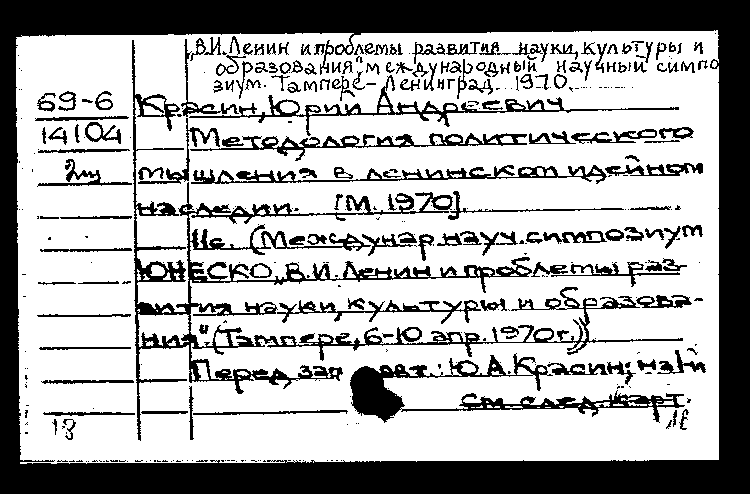 „В.И.Ленин и проблемы развития науки, культуры и
образования", международный научный симпо
зиум. Тампере-Ленинград. 1970.
69-6 Красин, Юрий Андреевич
14104 Методология политического
мышления в ленинском идейном
наследии. [М. 1970].
11с. (Междунар. науч. симпозиум
ЮНЕСКО „В.И. Ленин и проблемы раз-
вития науки, культуры и образова-
ния". (Тампере, 6-10 апр. 1970г.))
Перед заг авт.: Ю.А. Красин; на
см след. карт.
18